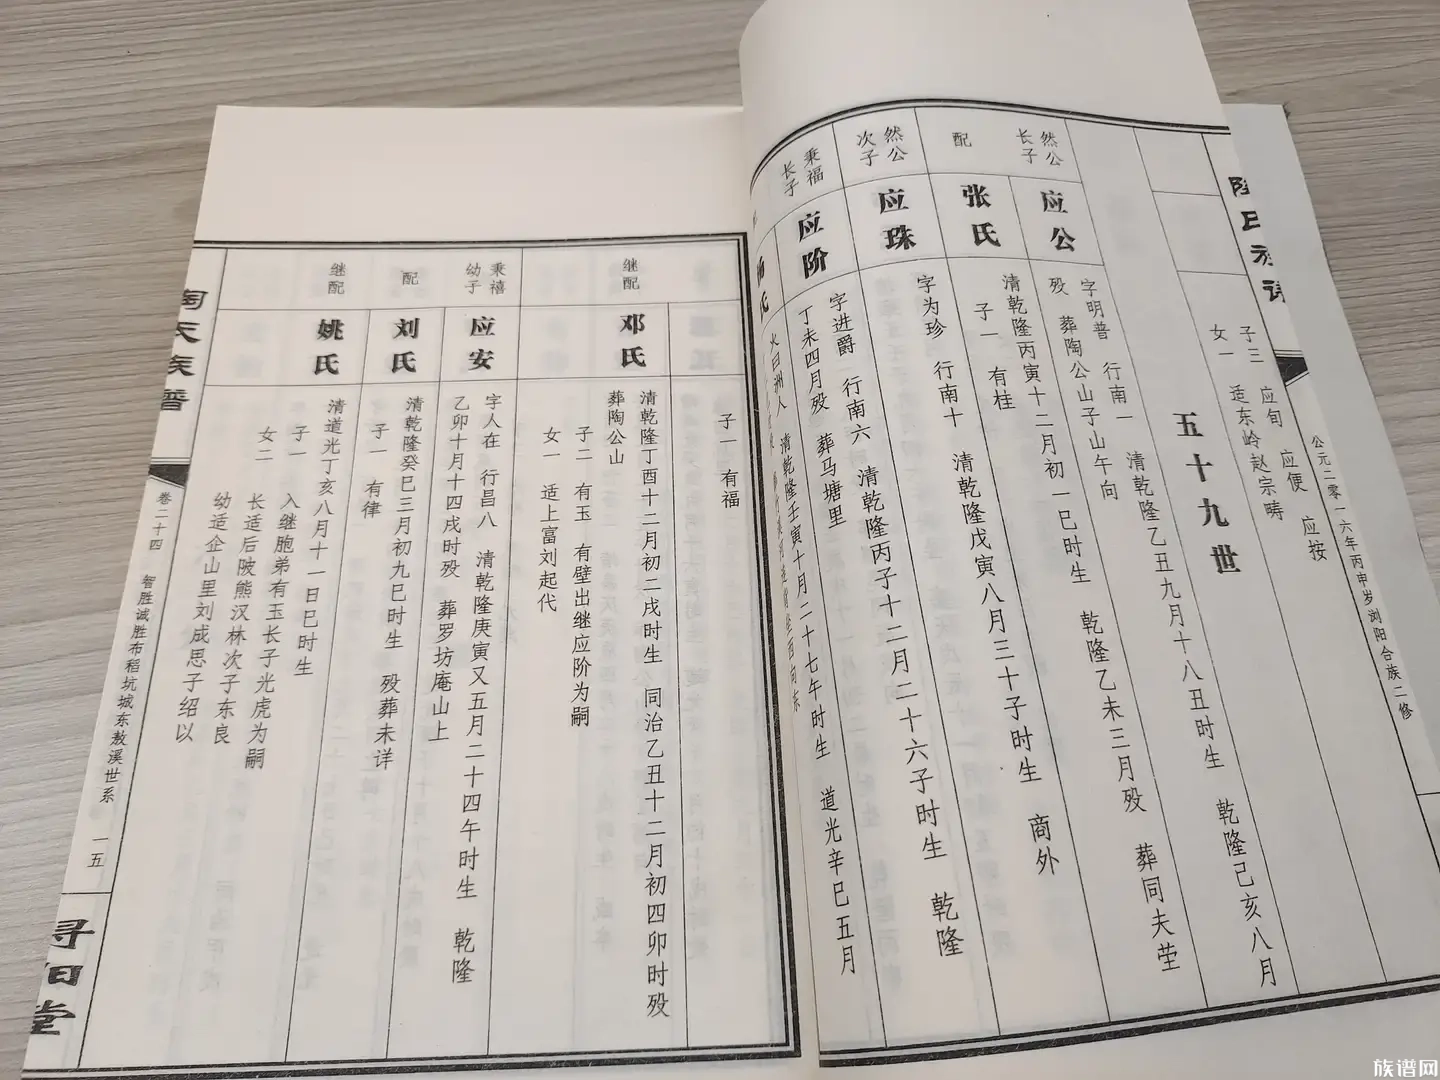 陶氏族谱
公元二零一六年丙申岁浏阳合族二修
子三 应旬 应便 应按
女一 适东岭赵宗畴
五十九世
然公
长子
应公
字明普 行南一 清乾隆乙丑九月十八丑时生 乾隆己亥八月
殁 葬陶公山子山午向
配
张氏
清乾隆丙寅十二月初一巳时生 乾隆乙未三月殁 葬同夫茔
子一 有桂
然公
次子
应珠
字为珍 行南十 清乾隆戊寅八月三十子时生 商外
秉福
长子
应阶
字进爵 行南六 清乾隆丙子十二月二十六子时生 乾隆
丁未四月殁 葬马塘里
氏
清乾隆壬寅十月二十七午时生 道光辛巳五月
子一 有福
继配
邓氏
清乾隆丁酉十二月初二戌时生 同治乙丑十二月初四卯时殁
葬陶公山
子二 有玉 有壁出继应阶为嗣
女一 适上富刘起代
秉禧
幼子
应安
字人在 行昌八 清乾隆庚寅又五月二十四午时生 乾隆
乙卯十月十四戌时殁 葬罗坊庵山上
配
刘氏
清乾隆癸巳三月初九巳时生 殁葬未详
子一 有律
继配
姚氏
清道光丁亥八月十一日巳时生
子一 入继胞弟有玉长子光虎为嗣
女二 长适后陂熊汉林次子东良
幼适企山里刘成思子绍以
陶氏族谱
卷二十四 智胜诚胜布稻坑城东敖溪世系 一五
寻阳堂
族谱网